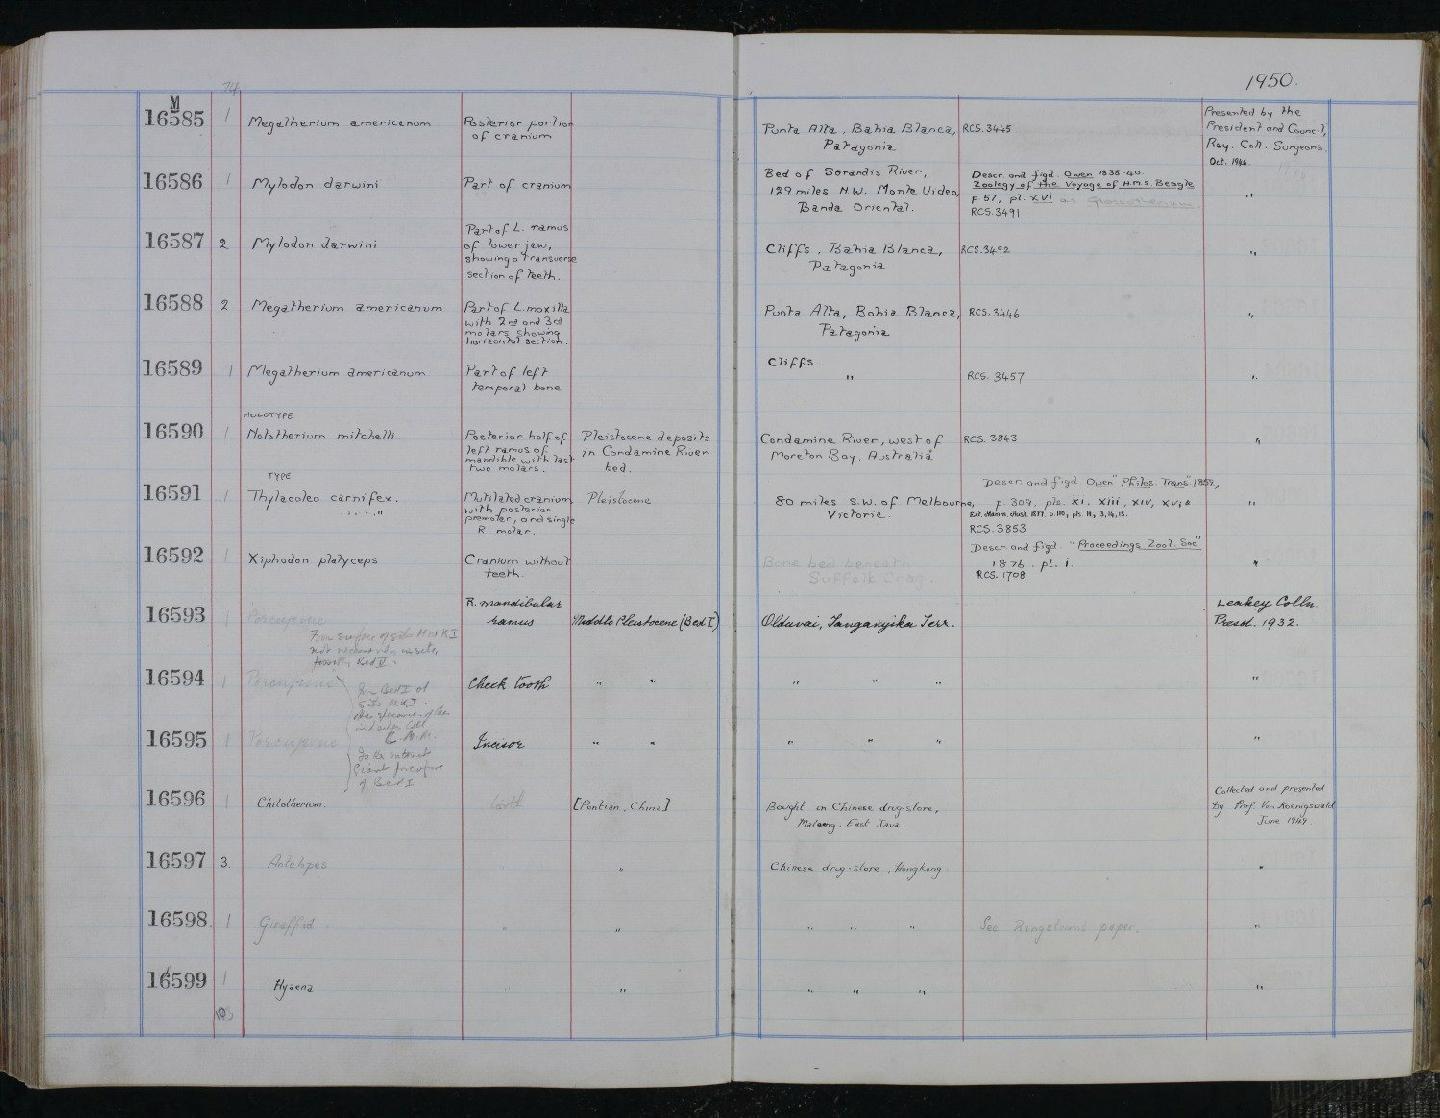 1950.
M
16585 1 Megatherium americanum Posterior portion of cranium Punta Alta, Bahia Blanca, Patagonia RCS. 3445 Presented by the President and Council, Roy. Coll. Surgeons. Oct. 1946.
16586 1 Mylodon darwini Part of cranium Bed of Sarandis River, 129 miles N.W. Monte Video, Banda Oriental. Descr. and figd. Owen 1838-40. Zoology of the Voyage of H.M.S. Beagle p 57, pl. XVI as Glossotherium. RCS. 3491 "
16587 2 Mylodon darwini Part of L. ramus of lower jaw, showing a transverse section of teeth. Cliffs, Bahia Blanca, Patagonia "
16588 2 Megatherium americanum Part of L. maxilla with 2nd and 3rd molars showing horizontal section. Punta Alta, Bahia Blanca, Patagonia RCS. 3446 "
16589 1 Megatherium americanum Part of left temporal bone Cliffs " RCS. 3457 "
HOLOTYPE
16590 1 Nototherium mitchelli Posterior half of left ramus of mandible with last two molars. Pleistocene deposits in Condamine River bed. Condamine River, west of Moreton Bay, Australia RCS. 3843 "
TYPE
16591 1 Thylacoleo carnifex. Mutilated cranium, with posterior premolar, and single R. molar. Pleistocene 80 miles S.W. of Melbourne, Victoria. Descr. and figd. Owen "Philos. Trans." 1859, p. 309, pls. XI, XIII, XIV, XV, & Ext. Mamm. Aust. 1877. RCS. 3853 "
16592 1 Xiphodon platyceps Cranium without teeth. Bone bed beneath Suffolk Crag. Descr. and figd. "Proceedings Zool. Soc" 1876. pl. 1. RCS. 1708 "
16593 1 Porcupine R. mandibular ramus Middle Pleistocene (Bed I) Olduvai, Tanganyika Terr. Leakey Colln. Presd. 1932.
From surface of site
not necessarily in situ,
possibly Bed IV.
16594 1 Porcupine Cheek tooth " " " " " "
from Bed I at
16595 1 Porcupine Incisor " " " " " "
Giant porcupine
of Bed I
16596 1 Chilotherium. tooth [Pontian, China] Bought in Chinese drug-store, Malang. East Java Collected and presented by Prof. Von Koenigswald June 1949.
16597 3 Antelopes " Chinese drug-store, Hongkong "
16598 1 Giraffid. " " " " " See Ringstrom's paper. "
16599 1 Hyaena " " " " " "